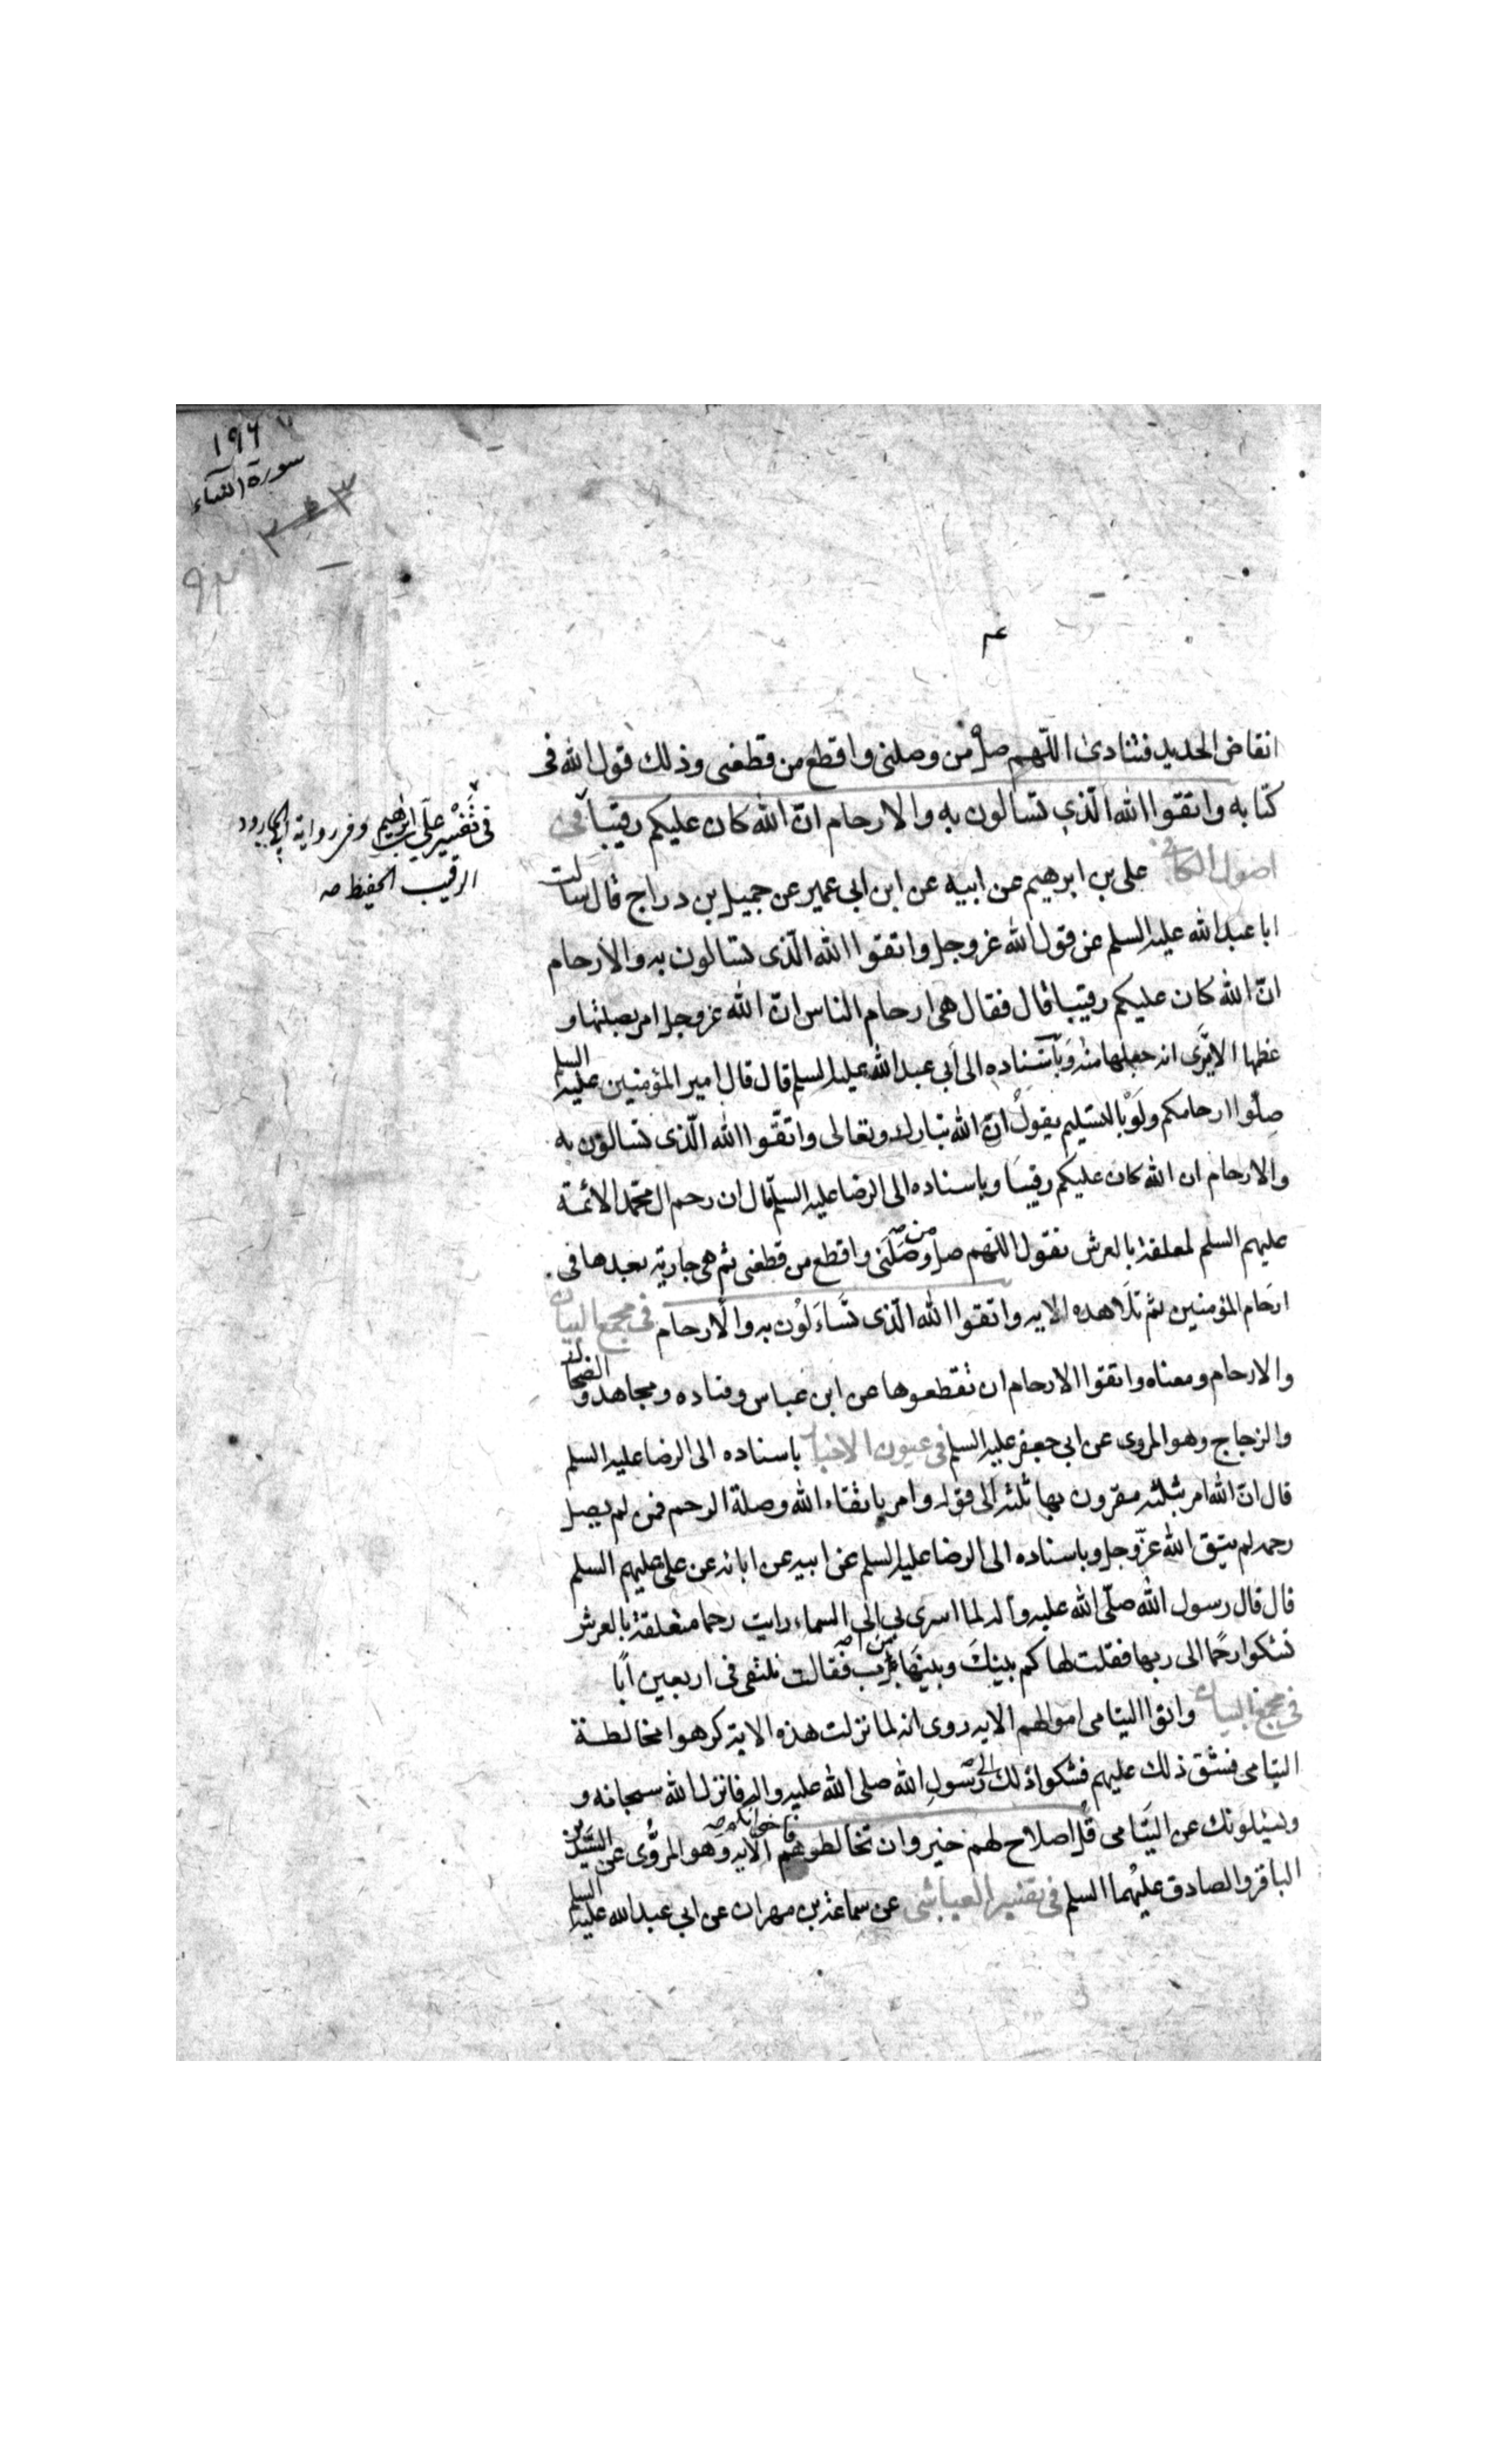 ١٩٦
سورة النساء
٩٣
انقاض الحديد فتنادى اللّهم صل من وصلنى واقطع من قطعنى وذلك قول الله فى
كتابه واتقوا الله الّذي تسالون به والارحام انّ الله كان عليكم رقيبا فى
اصول الكافى على بن ابرهيم عن ابيه عن ابن ابى عمير عن جميل بن دراج قال سالت
ابا عبد الله عليه السلم عن قول الله عز وجل واتقوا الله الّذى تسالون به والارحام
انّ الله كان عليكم رقيبا قال فقال هى ارحام الناس انّ الله عز وجل امر بصلتها و
عظمها الا ترى انه جعلها منه وباسناده الى ابى عبد الله عليه السلم قال قال امير المؤمنين عليه السلم
صلوا ارحامكم ولو بالتسليم يقول انّ الله تبارك وتعالى واتقوا الله الّذى تسالون به
والارحام ان الله كان عليكم رقيبا وباسناده الى الرضا عليه السلم قال ان رحم ال محمد الائمة
عليهم السلم لمعلقة بالعرش تقول اللهم صل من وصلنى واقطع من قطعنى ثم هى جارية بعدها فى
ارحام المؤمنين ثم تلا هذه الايه واتقوا الله الّذى تساءلون به والارحام فى مجمع البيان
والارحام ومعناه واتقوا الارحام ان تقطعوها عن ابن عباس وقتاده ومجاهد والضحاك
والزجاج وهو المروى عن ابى جعفر عليه السلم فى عيون الاخبار باسناده الى الرضا عليه السلم
قال انّ الله امر بثلثه مقرون بها ثلثه الى قوله وامر باتقاء الله وصلة الرحم فمن لم يصل
رحمه لم يتق الله عزّ وجل وباسناده الى الرضا عليه السلم عن ابيه عن ابائه عن على عليهم السلم
قال قال رسول الله صلّى الله عليه وآله لما اسرى بى الى السماء رايت رحما متعلقة بالعرش
تشكوا رحما الى ربها فقلت لها كم بينك وبينها من اب فقالت نلتقى فى اربعين ابا
فى مجمع البيان واتوا اليتامى اموالهم الايه روى انه لما نزلت هذه الاية كرهوا مخالطة
اليتامى فشق ذلك عليهم فشكوا ذلك الى رسول الله صلى الله عليه واله فانزل الله سبحانه و
ويسئلونك عن اليتامى قل اصلاح لهم خير وان تخالطوهم فاخوانكم الايه وهو المروى عن السيدين
الباقر والصادق عليهما السلم فى تفسير العياشى عن سماعة بن مهران عن ابى عبد الله عليه السلم
فى تفسير على بن ابراهيم وفى رواية ابى الجارود
الرقيب الحفيظ صه